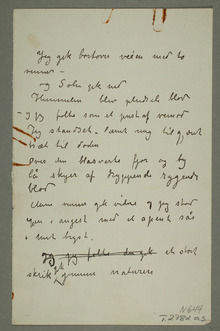 Jeg gik bortover veien med to
venner –
og Solen gik ned
Himmelen blev pludseli blod
– og jeg følte som et pust af vemod
Jeg standset, lænet mig
træt til døden
Over den blåsvarte fjor og by
lå skyer af dryppende rygende
blod
Mine venner gik videre og jeg stod
igjen i angest med et åpent sår
i mit bryst.
Jeg følte et stort
skrik gik gjennem naturen
N 644
T. 2782